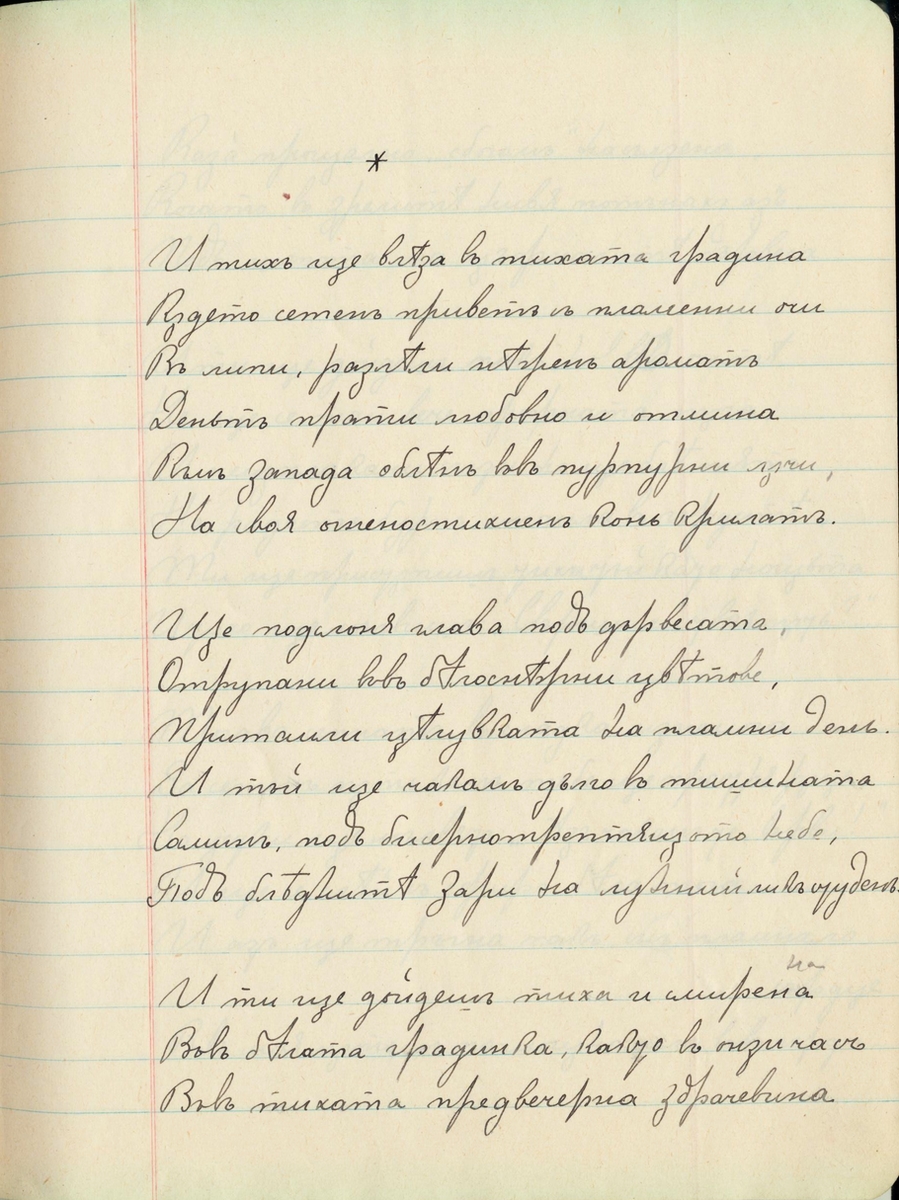 *
И тихъ ще влѣза въ тихата градина
Кѫдето сетенъ приветъ съ пламенни очи
Въ липи, разлѣли нѣженъ ароматъ
Деньтъ прати любовно и отмина
Къмъ запада облѣнъ вовъ пурпурни лучи,
На своя огненостихиенъ конь крилатъ.
Ще подслоня глава подъ дървесата,
Отрупани вовъ бѣлоснѣжни цвѣтове,
Притаили цѣлувката на пламни день.
И тъй ще чакамъ дълго въ тишината
Саминъ, подъ бисернотрептящото небе,
Подъ блѣднитѣ зари на лунний ликъ студенъ.
И ти ще дойдешъ тиха и смирена
на
Вовъ бѣлата градинка, какво въ онзи часъ
Вовъ тихата предвечерна здрачевина